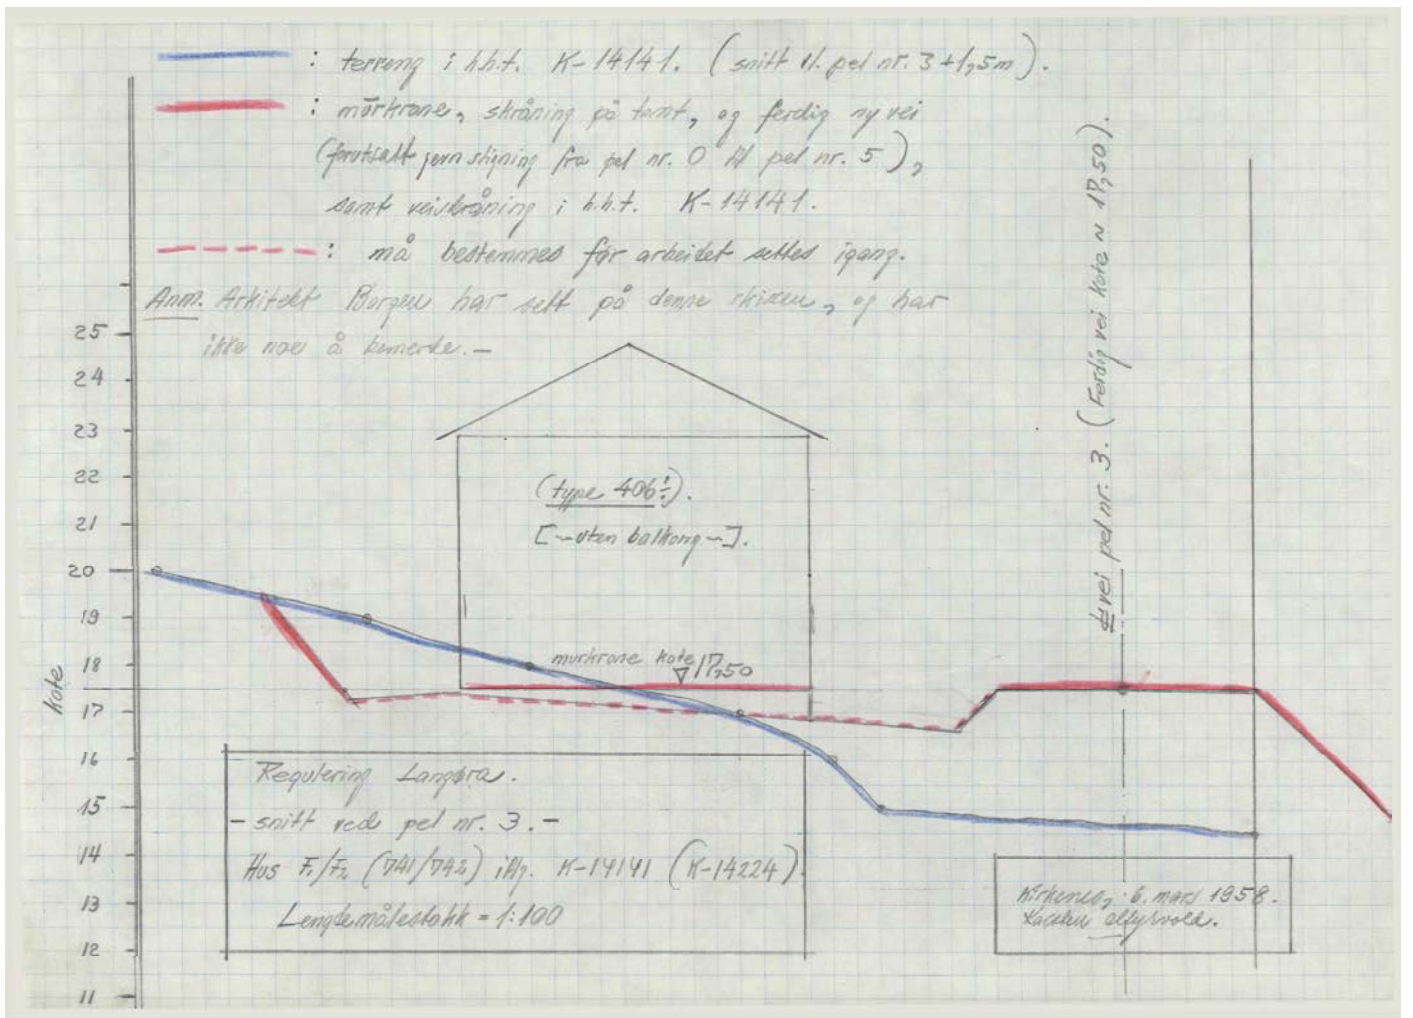 : terreng i h.h.t. K-14141. (snitt v/. pel nr. 3+1,5m).
: murkrone, skråning på tomt, og ferdig ny vei
(forutsatt jevn stigning fra pel nr. 0 til pel nr. 5),
samt veiskråning i h.h.t. K-14141.
: må bestemmes før arbeidet settes igang.
Anm. Arkitekt Borgen har sett på denne skissen, og har
ikke noe å bemerke.-
25
24
23
22
21
20
19
18
17
16
15
14
13
12
11
kote
(type 406÷).
[~uten balkong~].
murkrone kote 17,50
vei pel nr. 3. (Ferdig vei kote ~ 17,50).
Regulering Langøra.
- snitt ved pel nr. 3. -
Hus F₁/F₂ (741/742) iflg. K-14141 (K-14224).
Lengdemålestokk = 1:100
Kirkenes, 6. mars 1958.